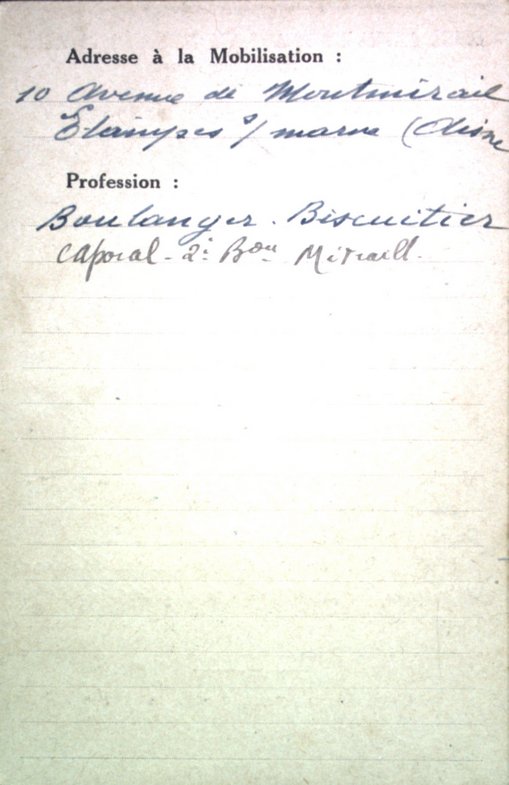 Adresse à la Mobilisation :
10 Avenue de Montmirail
Etampes s/ marne (Aisne
Profession :
Boulanger. Biscuitier
Caporal - 2e Bon Mitraill.